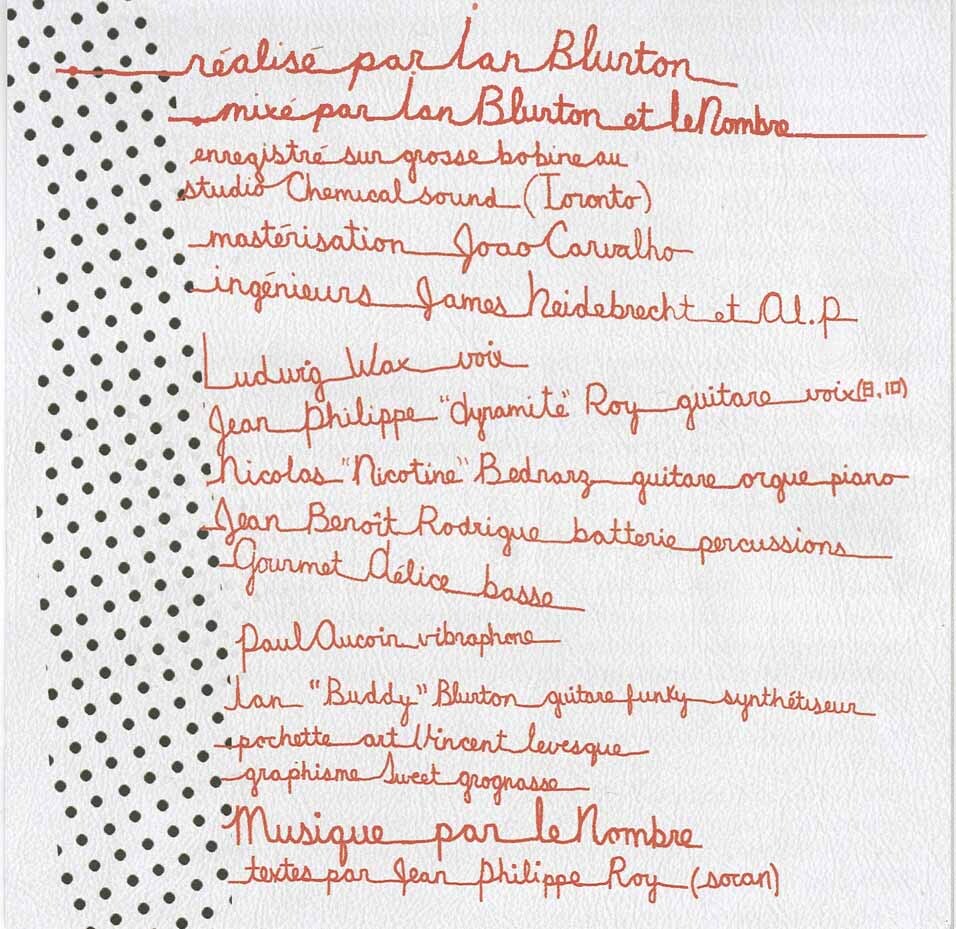 réalisé par Ian Blurton
mixé par Ian Blurton et le Nombre
enregistré sur grosse bobine au
studio Chemical sound (Toronto)
mastérisation Joao Carvalho
ingénieurs James heidebrecht et al.p
Ludwig Wax voix
Jean philippe "dynamite" Roy guitare voix (8, 10)
Nicolas "Nicotine" Bednarz guitare orgue piano
Jean Benoît Rodrigue batterie percussions
Gourmet délice basse
paul Aucoin vibraphone
Ian "Buddy" Blurton guitare funky synthétiseur
pochette art Vincent levesque
graphisme Sweet grognasse
Musique par le Nombre
textes par Jean philippe Roy (socan)